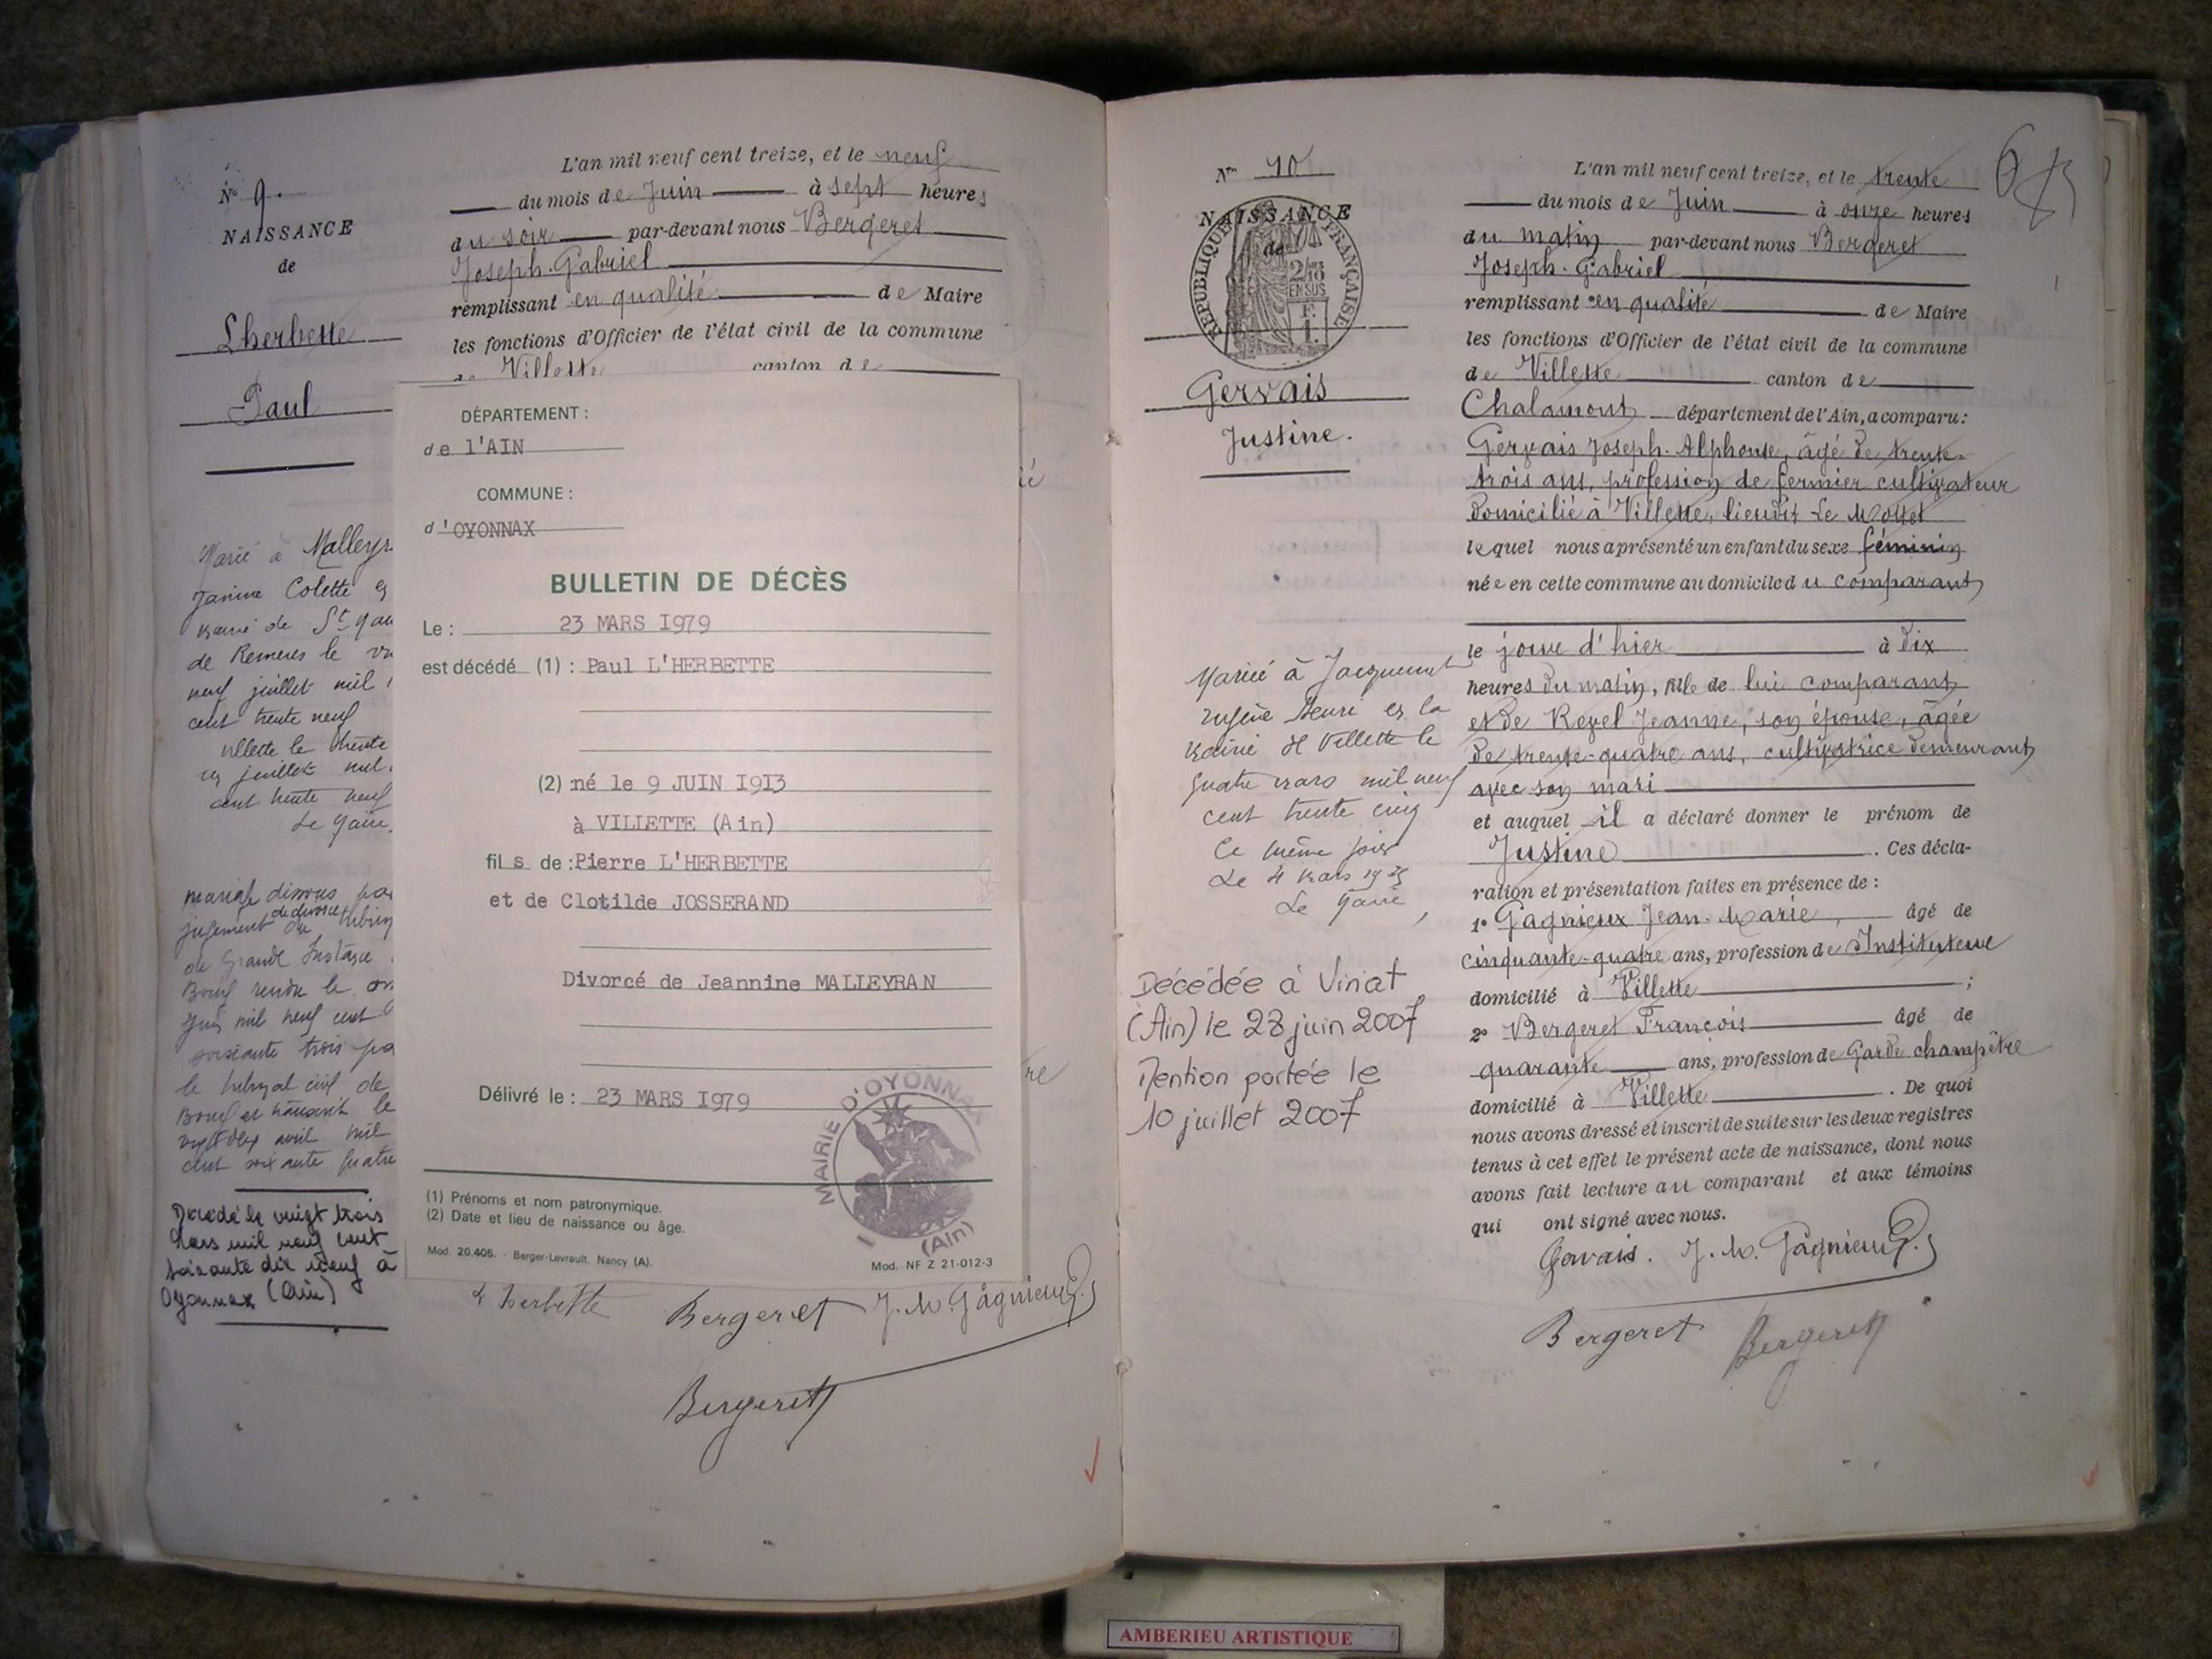 N° 9.
NAISSANCE
de
Lherbette
Paul
L'an mil neuf cent treize, et le neuf
du mois de Juin à sept heures
du soir par-devant nous Bergeret
Joseph-Gabriel
remplissant en qualité de Maire
les fonctions d'Officier de l'état civil de la commune
de Villette canton de
Marié à Malleyr
Janine Colette
de St
de le
neuf juillet mil
cent trente neuf
Villette le trente
juillet mil
cent trente neuf
Le Maire,
mariage dissous pa
jugement de divorce du
de Grande Instance
Bourg rendu le
Juin mil neuf cent
soixante trois pa
le civil de
Bourg et transcrit le
avril mil
cent soixante quatre
Décédé le vingt trois
Mars mil neuf cent
soixante dix neuf à
Oyonnax (Ain)
DÉPARTEMENT :
de l'AIN
COMMUNE :
d'OYONNAX
BULLETIN DE DÉCÈS
Le : 23 MARS I979
est décédé (1) : Paul L'HERBETTE
(2) né le 9 JUIN I9I3
à VILLETTE (Ain)
fils de : Pierre L'HERBETTE
et de Clotilde JOSSERAND
Divorcé de Jeannine MALLEYRAN
Délivré le : 23 MARS I979
MAIRIE D'OYONNAX
(Ain)
(1) Prénoms et nom patronymique.
(2) Date et lieu de naissance ou âge.
Mod. 20.405. - Berger-Levrault, Nancy (A).
Mod. NF Z 21-012-3
Lherbette Bergeret J. M. Gagnieux
Bergeret
N° 10
NAISSANCE
de
RÉPUBLIQUE FRANÇAISE
2/10
EN SUS
F.
1.
Gervais
Justine.
L'an mil neuf cent treize, et le trente
du mois de Juin à onze heures
du matin par-devant nous Bergeret
Joseph-Gabriel
remplissant en qualité de Maire
les fonctions d'Officier de l'état civil de la commune
de Villette canton de
Chalamont département de l'Ain, a comparu :
Gervais Joseph-Alphonse, âgé de trente-
trois ans, profession de fermier cultivateur
domicilié à Villette, lieudit Le Mollet
lequel nous a présenté un enfant du sexe féminin
née en cette commune au domicile du comparant
le jour d'hier à dix
heures du matin, fille de lui comparant
et de Revel Jeanne, son épouse, âgée
de trente-quatre ans, cultivatrice demeurant
avec son mari
et auquel il a déclaré donner le prénom de
Justine. Ces décla-
ration et présentation faites en présence de :
1° Gagnieux Jean-Marie, âgé de
cinquante-quatre ans, profession de Instituteur
domicilié à Villette ;
2° Bergeret François âgé de
quarante ans, profession de Garde champêtre
domicilié à Villette. De quoi
nous avons dressé et inscrit de suite sur les deux registres
tenus à cet effet le présent acte de naissance, dont nous
avons fait lecture au comparant et aux témoins
qui ont signé avec nous.
Gervais. J. M. Gagnieux
Bergeret Bergeret
Mariée à Jacquemet
Eugène Henri en la
Mairie de Villette le
quatre mars mil neuf
cent trente cinq
Ce même jour
Le 4 Mars 1935
Le Maire,
Décédée à Viriat
(Ain) le 28 juin 2007
Mention portée le
10 juillet 2007
AMBERIEU ARTISTIQUE